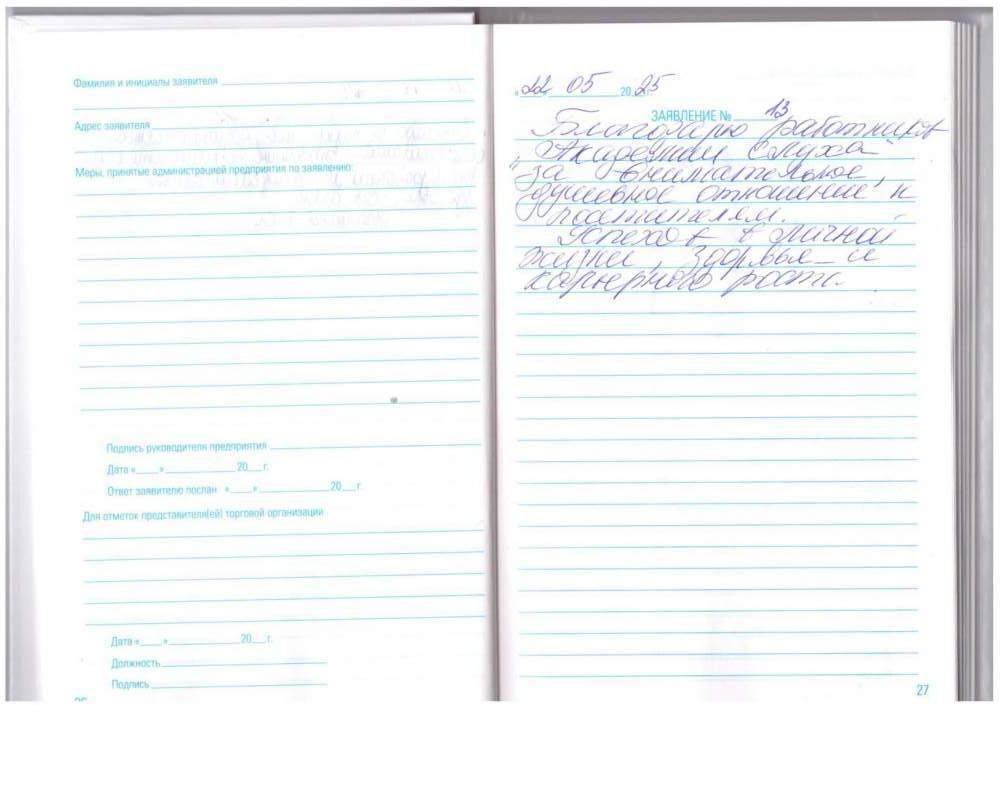 Фамилия и инициалы заявителя
Адрес заявителя
Меры, принятые администрацией предприятия по заявлению:
Подпись руководителя предприятия
Дата «____» ____________ 20___г.
Ответ заявителю послан «____» ____________ 20___г.
Для отметок представителя(ей) торговой организации
Дата «____» ____________ 20___г.
Должность
Подпись
«22 05 2025
ЗАЯВЛЕНИЕ № 13
Благодарю работников
"Академии слуха"
за внимательное,
душевное отношение к
посетителям.
Успехов в личной
жизни, здоровья и
карьерного роста.
27